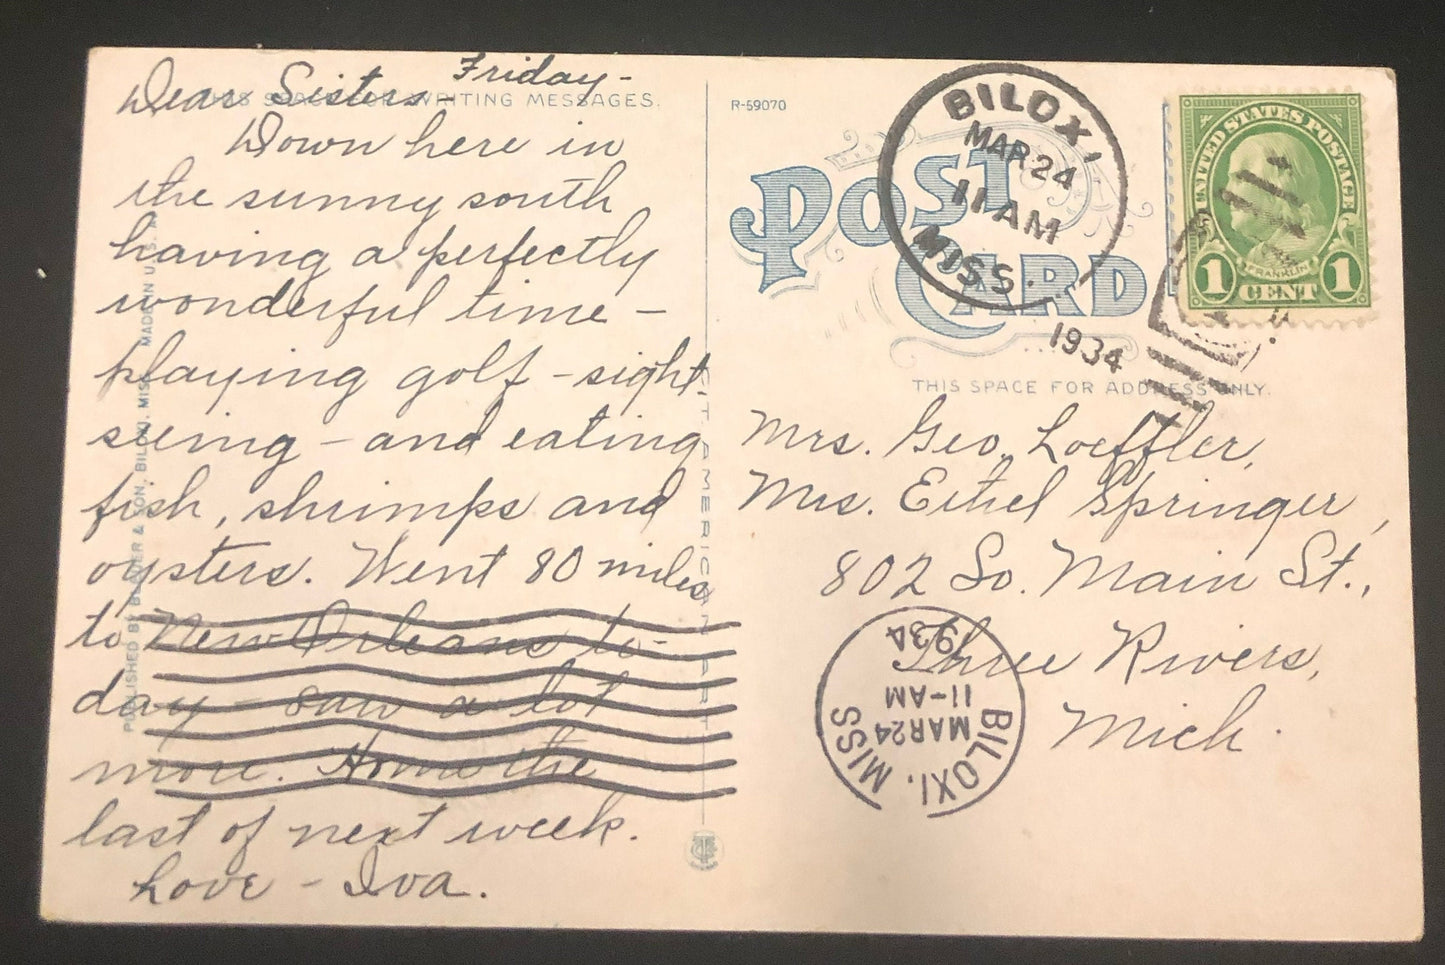 Friday-
Dear Sisters-
THIS SPACE FOR WRITING MESSAGES.
Down here in
the sunny south
having a perfectly
wonderful time -
playing golf - sight-
seeing - and eating
fish, shrimps and
oysters. Went 80 miles
to New Orleans to-
day - saw a lot
more. Home the
last of next week.
Love - Iva.
PUBLISHED BY & SON, BILOXI, MISS. MADE IN U.S.A.
R-59070
POST CARD
BILOXI,
MAR 24
11 AM
MISS.
1934
UNITED STATES POSTAGE
FRANKLIN
1 CENT 1
THIS SPACE FOR ADDRESS ONLY.
Mrs. Geo. Loeffler,
Mrs. Ethel Springer,
802 So. Main St.,
Three Rivers,
Mich.
BILOXI, MISS
MAR 24
11-AM
1934